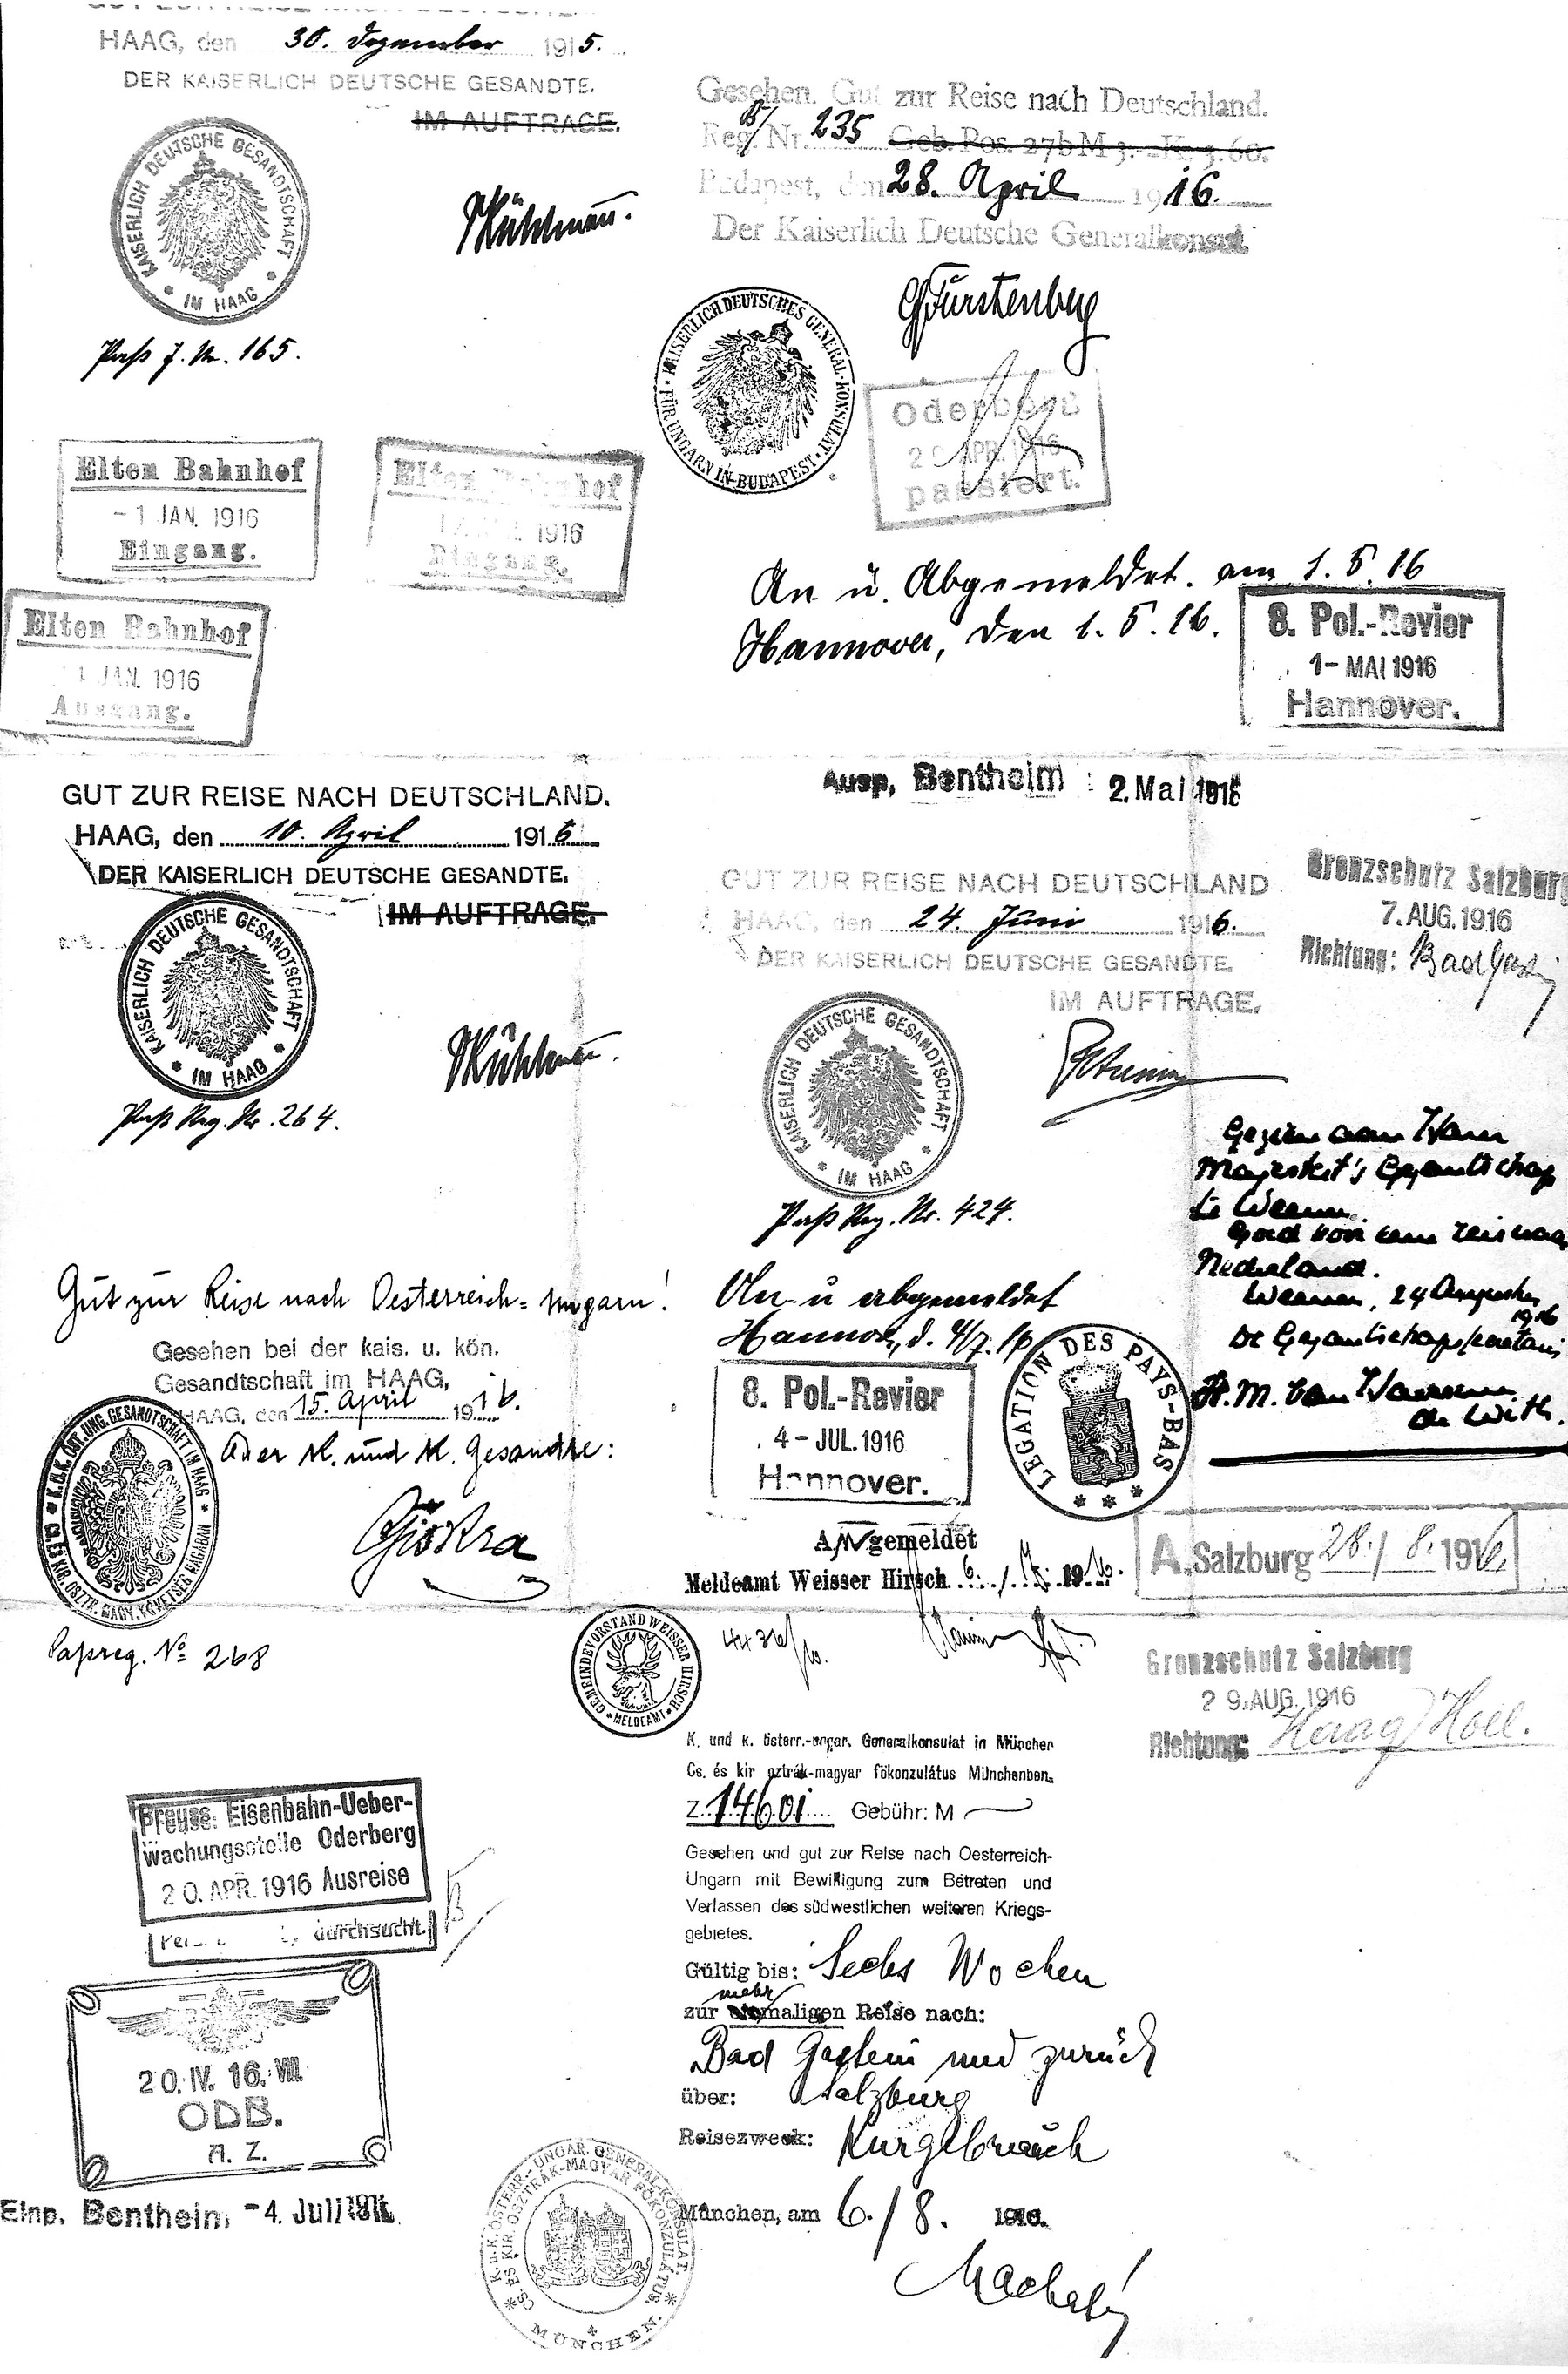 HAAG, den 30. Dezember 1915.
DER KAISERLICH DEUTSCHE GESANDTE.
IM AUFTRAGE.
KAISERLICH DEUTSCHE GESANDTSCHAFT
* IM HAAG *
Kühlmann.
Paß J. Nr. 165.
Elten Bahnhof
- 1 JAN. 1916
Eingang.
Elten Bahnhof
1916
Eingang.
Elten Bahnhof
1 JAN. 1916
Ausgang.
Gesehen. Gut zur Reise nach Deutschland.
Reg. Nr. 235 Geb. Pos. 27b M 3.- K. 3.60.
Budapest, den 28. April 1916.
Der Kaiserlich Deutsche Generalkonsul.
Fürstenberg
KAISERLICH DEUTSCHES GENERAL-KONSULAT
FÜR UNGARN IN BUDAPEST
Oderberg
APR. 1916
passiert.
An u. Abgemeldet. am 1. 5. 16
Hannover, den 1. 5. 16.
8. Pol.-Revier
1- MAI 1916
Hannover.
GUT ZUR REISE NACH DEUTSCHLAND.
HAAG, den 10. April 1916
DER KAISERLICH DEUTSCHE GESANDTE.
IM AUFTRAGE.
KAISERLICH DEUTSCHE GESANDTSCHAFT
* IM HAAG *
Kühlmann.
Paß Reg. Nr. 264.
Gut zur Reise nach Oesterreich-Ungarn!
Gesehen bei der kais. u. kön.
Gesandtschaft im HAAG,
HAAG, den 15. April 1916.
Der K. und K. Gesandte:
K. u. K. ÖST. UNG. GESANDTSCHAFT IM HAAG
CS. ÉS KIR. OSZTR. MAGY. KÖVETSÉG HÁGÁBAN
Passreg. No 268
Ausp. Bentheim 2. Mai 1916
GUT ZUR REISE NACH DEUTSCHLAND
HAAG, den 24. Juni 1916.
DER KAISERLICH DEUTSCHE GESANDTE.
IM AUFTRAGE.
KAISERLICH DEUTSCHE GESANDTSCHAFT
* IM HAAG *
Paß Reg. Nr. 424.
Grenzschutz Salzburg
7. AUG. 1916
Richtung: Bad Gastein
Gezien aan Harer
Majesteit's Gezantschap
te Weenen.
Goed voor een reis naar
Nederland.
Weenen, 24 Augustus
1916
De Gezantschapssecretaris
de With.
LEGATION DES PAYS-BAS
* * *
An u abgemeldet
Hannover, d. 4/7. 16
8. Pol.-Revier
4- JUL. 1916
Hannover.
A. Salzburg 28./8. 1916
Angemeldet
Meldeamt Weisser Hirsch 6. 1916.
GEMEINDEVORSTAND WEISSER HIRSCH
* MELDEAMT *
Grenzschutz Salzburg
29. AUG. 1916
Richtung: Haag Holl.
Preuss. Eisenbahn-Ueber-
wachungsstelle Oderberg
20. APR. 1916 Ausreise
durchsucht.
20. IV. 16. VIII.
ODB.
A. Z.
Einp. Bentheim -4. Juli 1916
K. und k. österr.-ungar. Generalkonsulat in München
Cs. és kir osztrák-magyar fökonzulátus Münchenben.
Z. 14601 Gebühr: M
Gesehen und gut zur Reise nach Oesterreich-
Ungarn mit Bewilligung zum Betreten und
Verlassen des südwestlichen weiteren Kriegs-
gebietes.
Gültig bis: Sechs Wochen
mehr
zur einmaligen Reise nach:
Bad Gastein und zurück
über: Salzburg
Reisezweck: Kurgebrauch
München, am 6./8. 1916.
K. u. K. ÖSTERR.-UNGAR. GENERAL-KONSULAT.
CS. ÉS KIR. OSZTRÁK-MAGYAR FÖKONZULÁTUS.
MÜNCHEN.